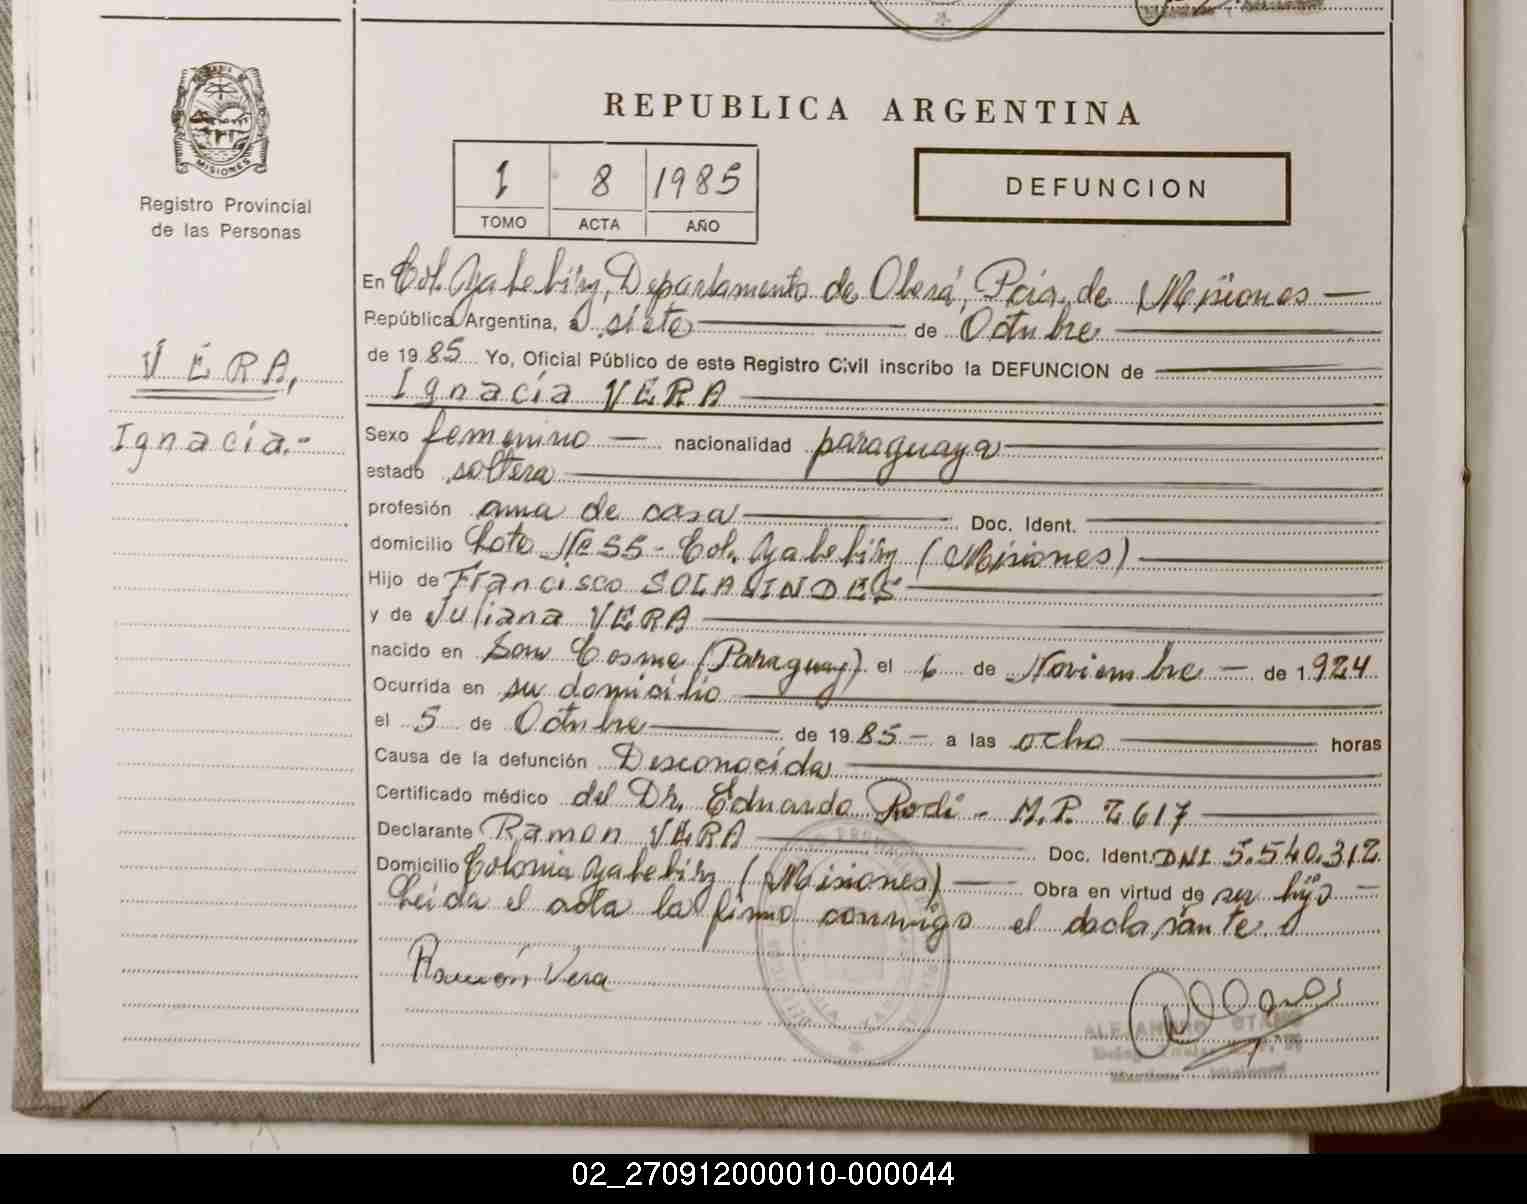 REPUBLICA ARGENTINA
MISIONES
Registro Provincial
de las Personas
1 8 1985
TOMO ACTA AÑO
DEFUNCION
VERA,
Ignacia.-
En Col. Yabebiry, Departamento de Oberá, Pcia. de Misiones —
República Argentina, a siete de Octubre
de 1985 Yo, Oficial Público de este Registro Civil inscribo la DEFUNCION de
Ignacia VERA
Sexo femenino — nacionalidad paraguaya
estado soltera
profesión ama de casa Doc. Ident.
domicilio Lote Nº 55 - Col. Yabebiry (Misiones)
Hijo de Francisco SOLALINDES
y de Juliana VERA
nacido en San Cosme (Paraguay) el 6 de Noviembre — de 1.924
Ocurrida en su domicilio
el 5 de Octubre de 19 85 — a las ocho horas
Causa de la defunción Desconocida
Certificado médico del Dr. Eduardo Rodi - M.P. 2617
Declarante Ramon VERA Doc. Ident. DNI 5.540.312
Domicilio Colonia Yabebiry (Misiones) — Obra en virtud de ser hijo —
Leida el acta la firma conmigo el declarante
Ramón Vera
ALEJANDRO
02_270912000010-000044